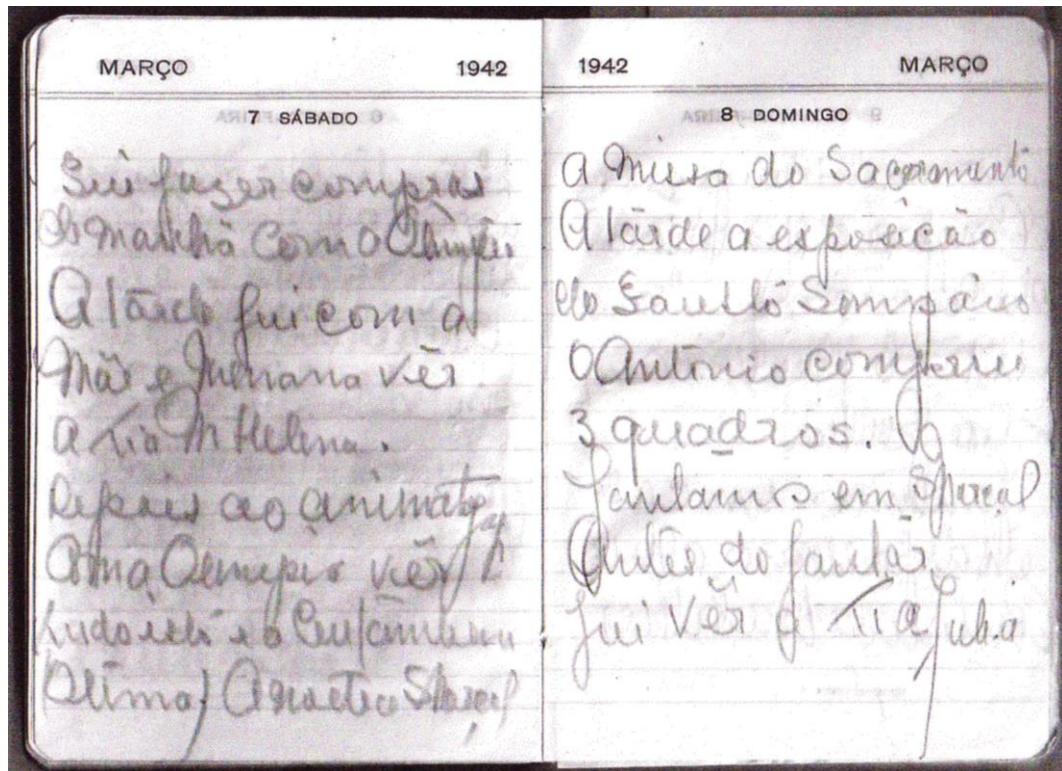 MARÇO 1942
7 SÁBADO
Fui fazer compras
de manhã com o
A tarde fui com a
Mãe e vêr
a Tia Mª Helena.
Depois ao animatog
com a vêr
tudo isto e o Ceu tambem
(Otimo) A noite S.
1942 MARÇO
8 DOMINGO
a Missa do Sacramento
A tarde a exposicão
do Fausto Sampaio
O António comprou
3 quadros.
Jantamos em S.
Antes do jantar
fui vêr a Tia Julia